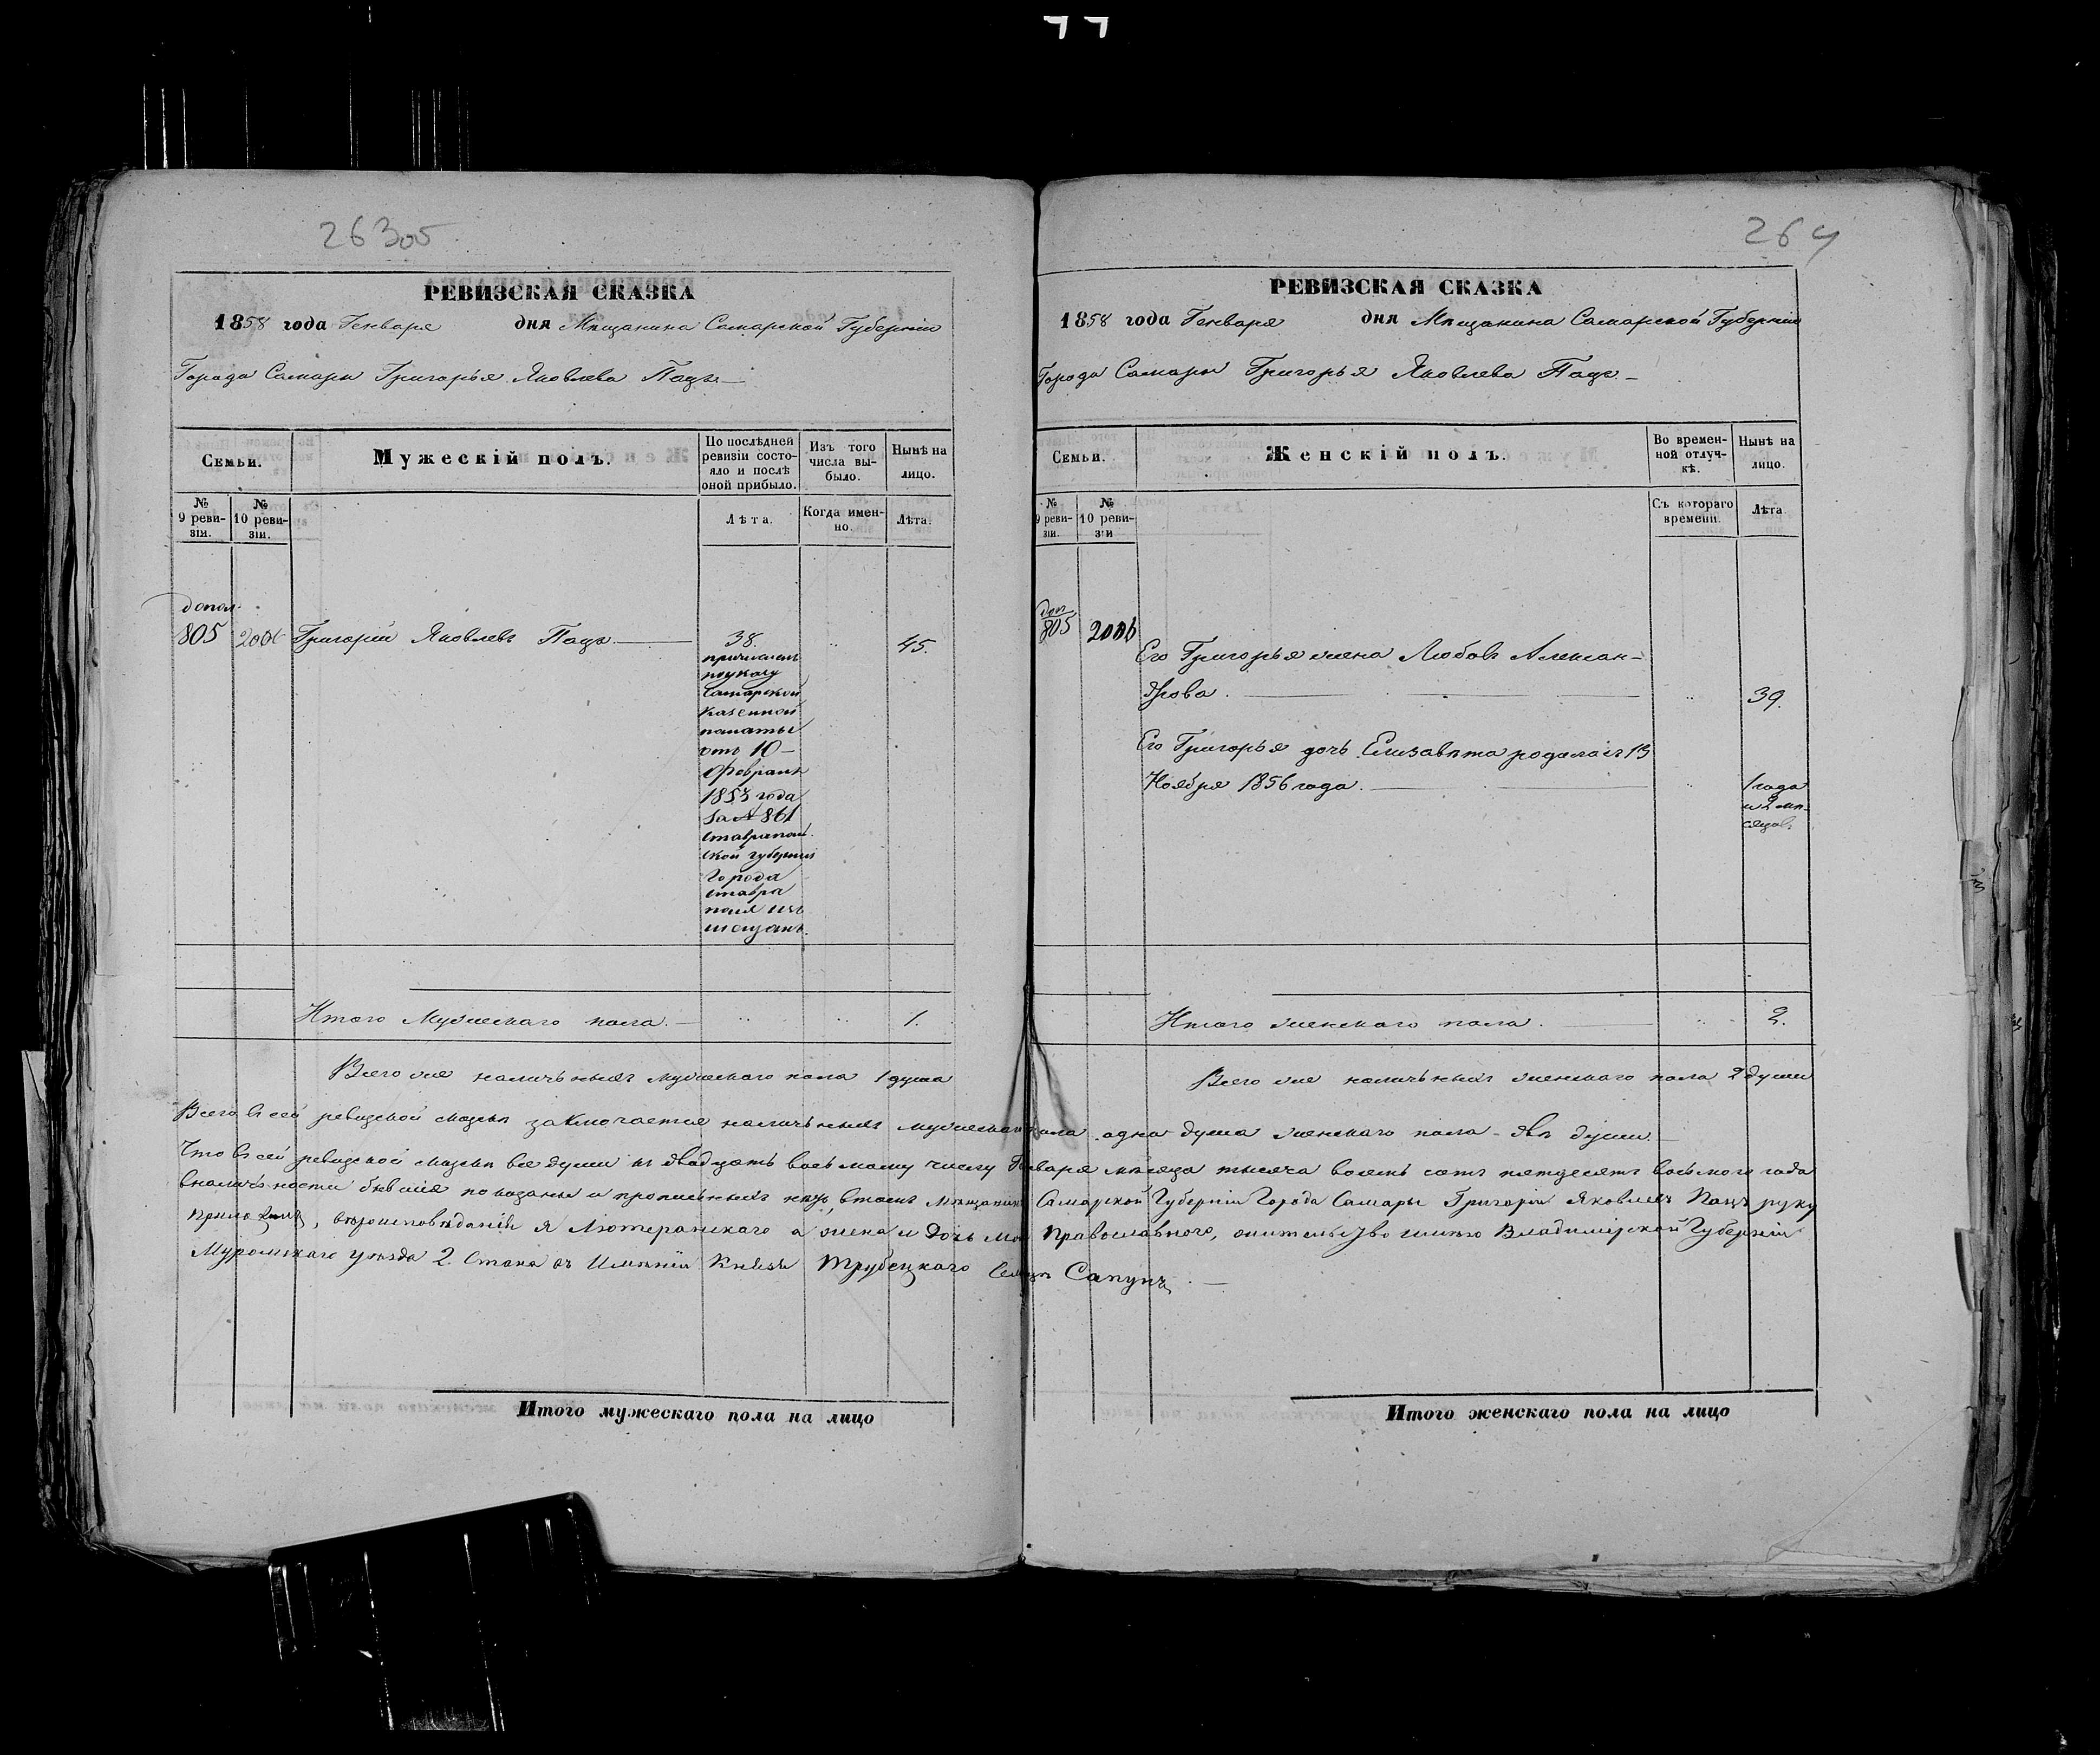 263об
РЕВИЗСКАЯ СКАЗКА
1858 года Генваря дня Мѣщанина Самарской Губерніи
Города Самары Григорья Яковлева Пацъ
Семьи.
Мужескій полъ.
По послѣдней ревизіи состояло и послѣ оной прибыло.
Изъ того числа выбыло.
Нынѣ на лицо.
№ 9 ревизіи.
№ 10 ревизіи.
Лѣта.
Когда именно.
Лѣта.
допол.
805 2006 Григорій Яковлевъ Пацъ 38. 45.
причисленъ
по указу
Самарской
Казенной
палаты
отъ 10
Февраля
1853 года
За № 861
Ставрополь
ской губерніи
Города
Ставро
поля изъ
мещанъ.
Итого Мужескаго пола. 1.
Всего же наличьныхъ мужескаго пола 1 душа
264
РЕВИЗСКАЯ СКАЗКА
1858 года Генваря дня Мѣщанина Самарской Губерніи
Города Самары Григорья Яковлева Пацъ
Семьи.
Женскій полъ.
Во временной отлучкѣ.
Нынѣ на лицо.
№ 9 ревизіи.
№ 10 ревизіи
Съ котораго времени.
Лѣта.
доп
805 2006
Его Григорья жена Любовь Алексан-
дрова. 39.
Его Григорья дочь Елизавѣта родилась 13
Ноября 1856 года. 1 года
и 2 мѣ-
сяцов.
Итого женскаго пола. 2.
Всего же наличьныхъ женскаго пола 2 души
Всего въ сей ревизской сказкѣ заключается наличьныхъ мужескаго пола одна душа женскаго пола - двѣ души.
Что въ сей ревизской сказкѣ все души къ двадцать восьмому числу Генваря мѣсяца тысяча восемь сотъ пятдесятъ восьмого года
вналичьности бывшія показаны и прописьныхъ нѣтъ, втомъ мѣщанинъ Самарской Губерніи Города Самары Григорій Яковлевъ Пацъ руку
приложилъ, вѣроисповѣданія я Лютеранскаго а жена и дочь моя Православного, жительство имѣю Владимірской Губерніи
Муромскаго уѣзда 2. Стана въ Имѣніи Князя Трубецкаго Селцѣ Сапунъ.
Итого мужескаго пола на лицо
Итого женскаго пола на лицо